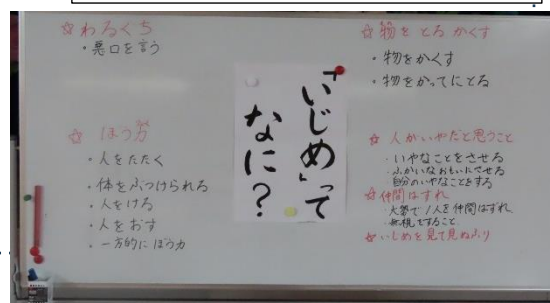 ☆わるくち
・悪口を言う
☆ぼう力
・人をたたく
・体をぶつけられる
・人をける
・人をおす
・一方的にぼう力
「いじめ」って
なに?
☆物をとるかくす
・物をかくす
・物をかってにとる
☆人がいやだと思うこと
・いやなことをさせる
・ふかいなおもいにさせる
・自分のいやなことをする
☆仲間はずれ
・大勢で1人を仲間はずれ
・無視すること
☆いじめを見て見ぬふり